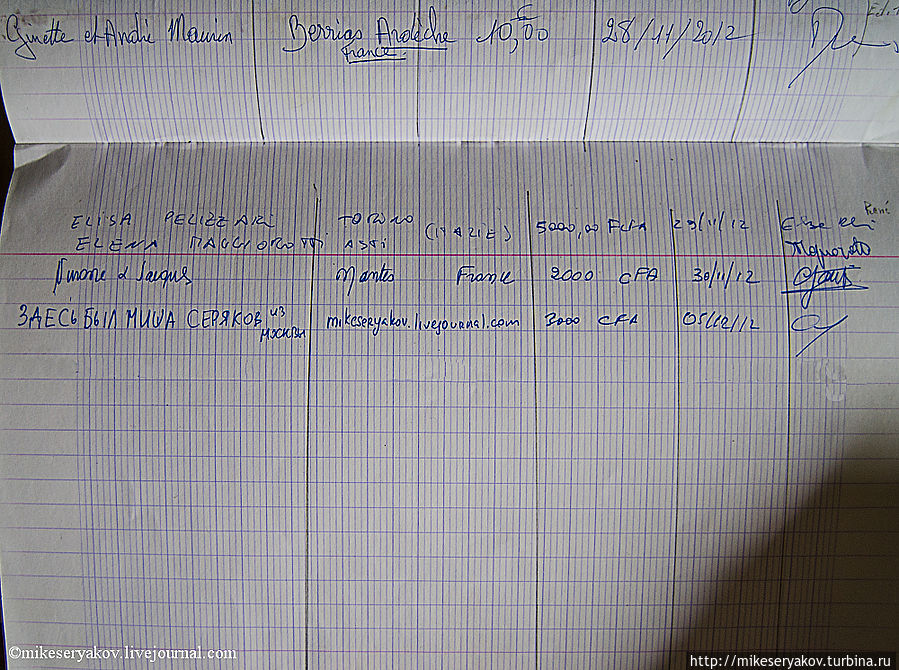 Ginette et André Maurin Berrias Ardèche 10,00 € 28/11/2012
France.
ELISA PELIZZARI TORINO (ITALIE) 5000,00 FCFA 29/11/12 René
ELENA MAGGIOROTTI ASTI
Simone & Jacques Nantes France 2000 CFA 30/11/12
ЗДЕСЬ БЫЛ МИША СЕРЯКОВ ИЗ МОСКВЫ mikeseryakov.livejournal.com 3000 CFA 05/12/12
©mikeseryakov.livejournal.com
http://mikeseryakov.turbina.ru